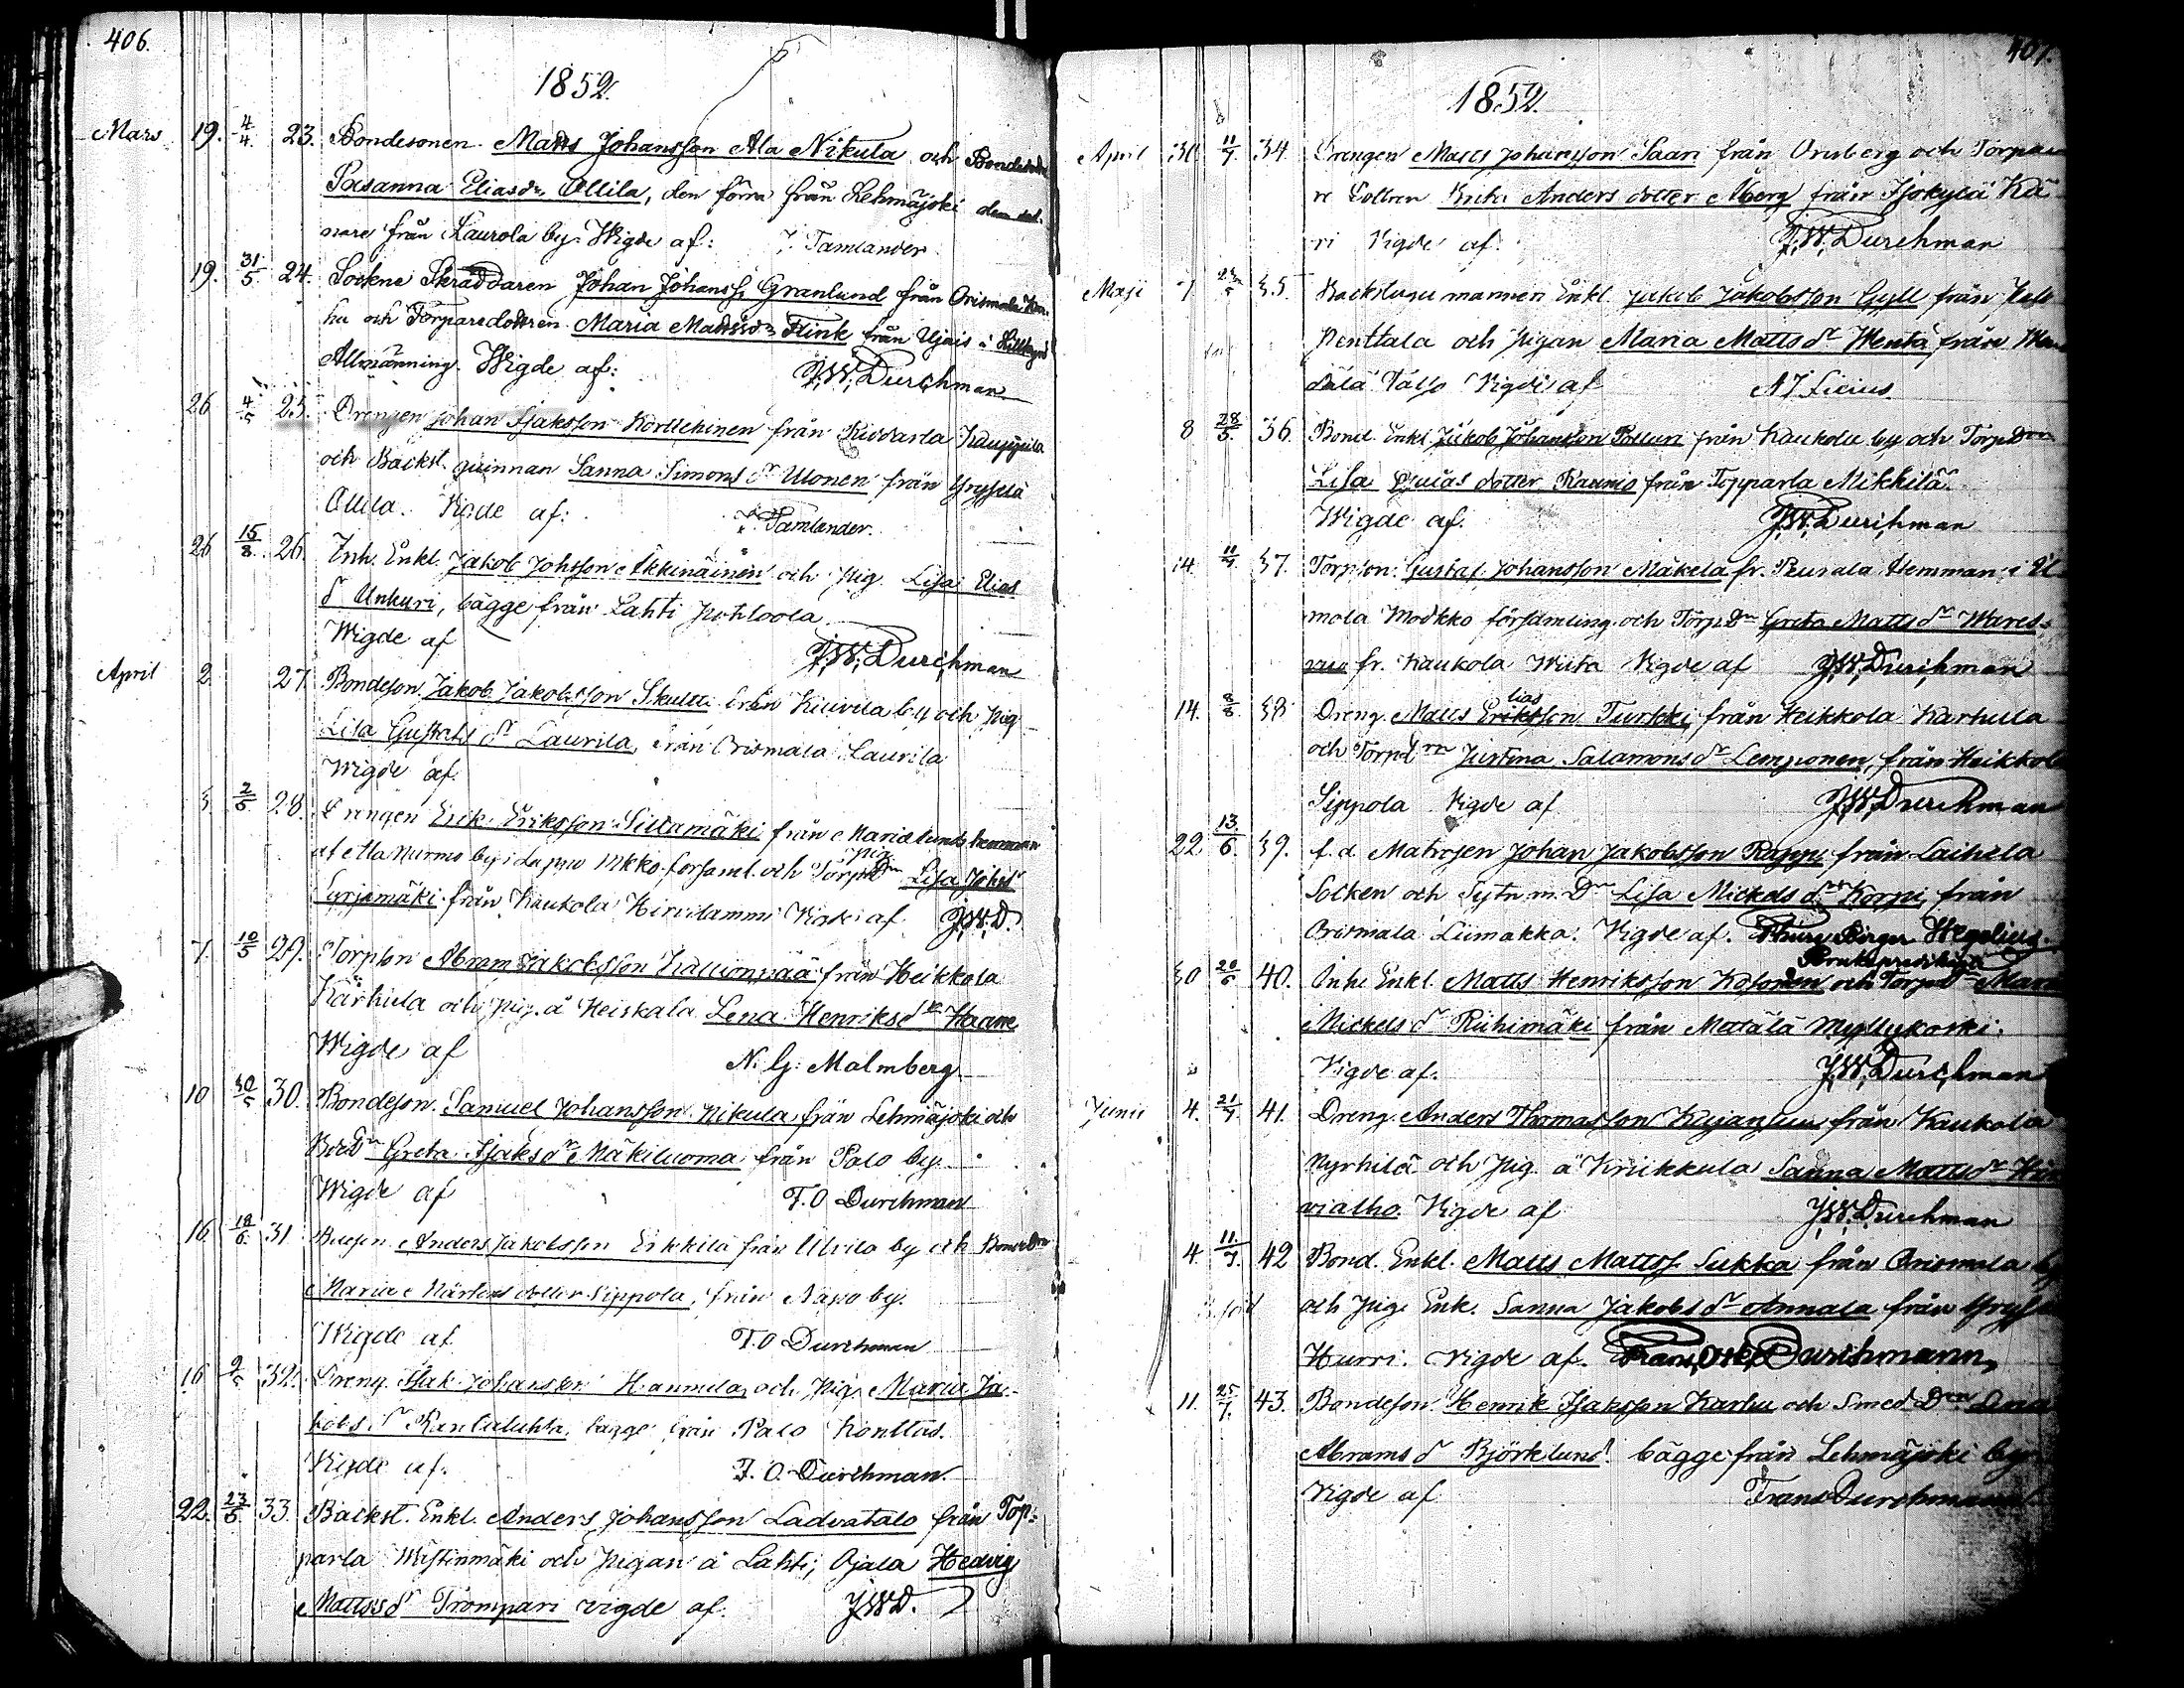 406.
1852.
Mars 19. 4/4. 23. Bondesonen Matts Johansson Ala Nikula och Bondedodr
Susanna Eliasdr Ollila, den förra från Lehmäjoki den sed-
nare från Laurola by. Wigde af: J. Tamlander
19. 31/5 24. Sockne Skräddaren Johan Johanss. Granlund från Orismala Kar-
hu och Torparedottren Maria Mattsdr Flink från Ujais i
Allmänning. Wigde af: J.W. Durchman
26 4/5 25. Drengen Johan Isaksson Korttehinen från Kuddasla Kauppila
och Backst. quinnan Sanna Simons dr Ulonen från Yryselä
Ollila. Vigde af: J. Tamlander.
26 15/8. 26. Inh. Enkl. Jakob Johsson Äkkinäinen och Pig. Lisa Elias
dr Unkuri, bägge från Lahti Pohloola
Wigde af J.W. Durchman
April 2. 27 Bondeson Jakob Jakobsson Skultti från Kiuvila by och Pig
Lisa Gustafs dr Laurila, från Orismala Laurila
Wigde af.
3. 2/5 28. Drengen Erik Eriksson Sillamäki från Marielunds hemman
af Ala Nurmo by i Lappo Mkko församl. och Torpdrn pig. Lisa Johsdr
Syrjämäki från Kaukola Hirvilammi Vigde af J.W.D.
7. 10/5 29. Torpson Abram Jakobsson Kallionpää från Heikkola
Karhula och Pig. å Heiskala Lena Henriksdr Haane
Wigde af N. G. Malmberg
10 30/5 30. Bondeson Samuel Johansson Nikula från Lehmäjoki och
Bondn Greta Isaks dr Mäkiluoma från Palo by.
Wigde af F. O Durchman
16 19/6. 31 Anders Jakobsson Erkkilä från Ulvila by och Bonddrn
Maria Mårtens dotter Sippola, från Napo by.
Wigde af F. O Durchman
16 9/5 32. Dreng. Isak Johansson Hannula, och Pig. Maria Ja-
kobs dr Rantaluhta, bägge från Palo Konttas.
Vigde af. F. O. Durchman.
22. 23/5 33. Backst. Enkl. Anders Johansson Ladvatalo från Top-
parla Wästinmäki och Pigan å Lahti, Ojala Hedvig
Mattssdr Trompari vigde af. JWD.
407.
1852.
April 30 11/7. 34. Drengen Matts Johansson Saari från Orisberg och Torpa-
re Dottren Anders dotter Åberg från Isokylä Ka-
ri Vigde af. J.W. Durchman
Maji 7 5 35. Backstugu mannen Enkl. Jakob Jakobsson Gyll från
Penttala och Pigan Maria Matts dr Wentä från
Vigde af A J Licius.
8 28/5. 36. Bond. Enkl. Jakob Johansson Polluri från Kaukola by och Torpdrn
Lisa dotter Raunio från Topparla Mikkilä.
Wigde af. J.W. Durchman
14. 37. Torpson. Gustaf Johansson Mäkelä fr. Peurala Hemman i Ul-
mola Modkko församling och Torpdrn Greta Matts dr Wares-
vuo fr. Kaukola Wiita Vigde af J.W. Durchman
14. 8/8. 38 Dreng. Matts Eriksson lias Turkki, från Heikkola Karhula
och Torpdrn Justina Salamons dr Lemponen, från Heikkola
Sippola Vigde af J.W. Durchman
22. 13/6. 39. f. d. Matrosen Johan Jakobsson Rapp från Laihela
Socken och Sytn. m. Drn Lisa Mickels dr Korpi, från
Orismala Liimakka. Vigde af. Thure Birger Hegelius.
Brukspredikant
30 20/6 40. Inh. Enkl. Matts Henriksson Kosonen och Torpdr Mari
Mickels dr Riihimäki från Mettälä Myllykoski.
Vigde af. J.W. Durchman
Junii 4. 21/7. 41. Dreng. Anders Thomasson Kujanpää från Kaukola
Nyrhilä och Pig. å Kriikkula Sanna Mattsdr Hir-
vialho. Vigde af J.W. Durchman
4. 11./7. 42 Bond. Enkl. Matts Mattss. Sukka från Orismala by
och Pig. Enk. Sanna Jakobs dr Annala från
Hurri. Vigde af. Frans Osk. Durchmann,
11. 25/7. 43. Bondeson Henrik Isaksson Karhu och Smed Drn
Abrams dr Björklund bägge från Lehmäjoki by
Vigde af Frans Durchmann